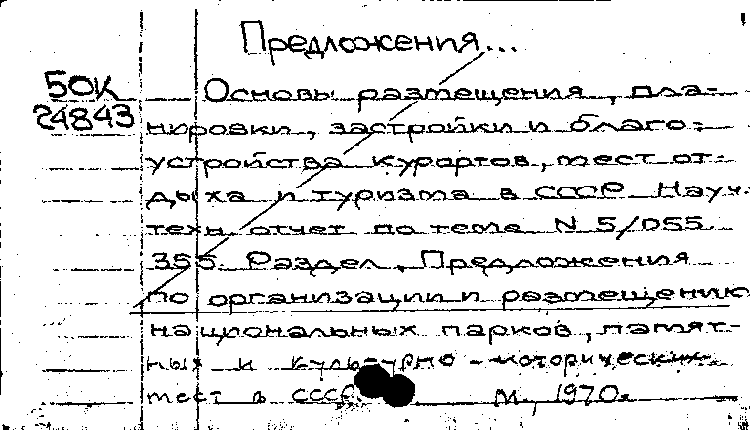 Предложения...
50К
24843
Основы размещения, пла-
нировки, застройки и благо-
устройства курортов, мест от-
дыха и туризма в СССР. Науч.
техн. отчет по теме N 5/055
355. Раздел. Предложения
по организации и размещению
национальных парков, памят-
ных и культурно-исторических
мест в СССР. М., 1970.